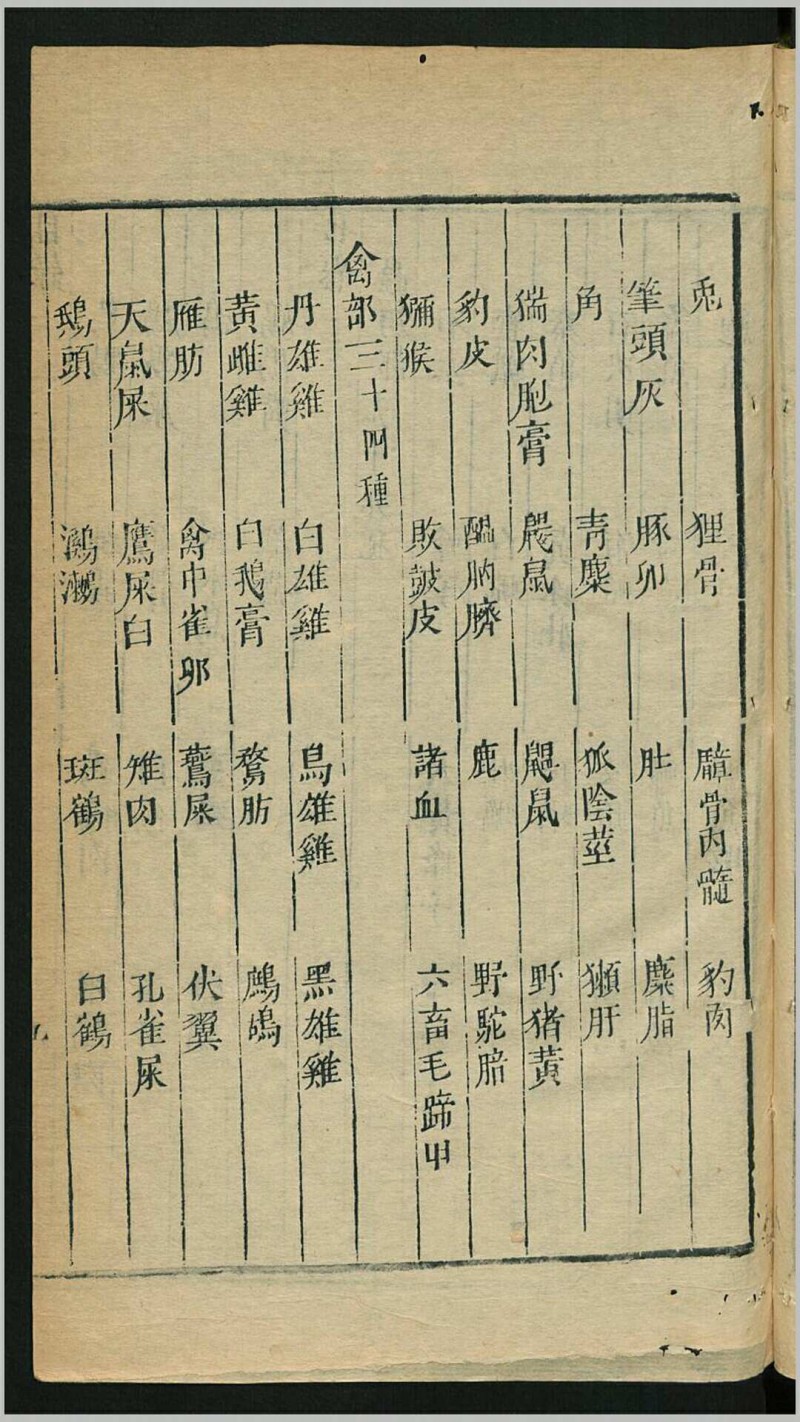 兎 狸骨 麞骨肉髓 豹肉
筆頭灰 豚卵 肚 麋脂
角 青麋 狐陰莖 獺肝
猯肉胞膏 鼹鼠 鼺鼠 野猪黃
豹皮 膃肭臍 鹿 野駝脂
獼猴 敗皷皮 諸血 六畜毛蹄甲
禽部三十四種
丹雄雞 白雄雞 烏雄雞 黑雄雞
黃雌雞 白鵝膏 鶩肪 鷓鴣
雁肪 禽中雀卵 鷰屎 伏翼
天鼠屎 鷹屎白 雉肉 孔雀屎
鴟頭 鸂鶒 斑鶴 白鶴